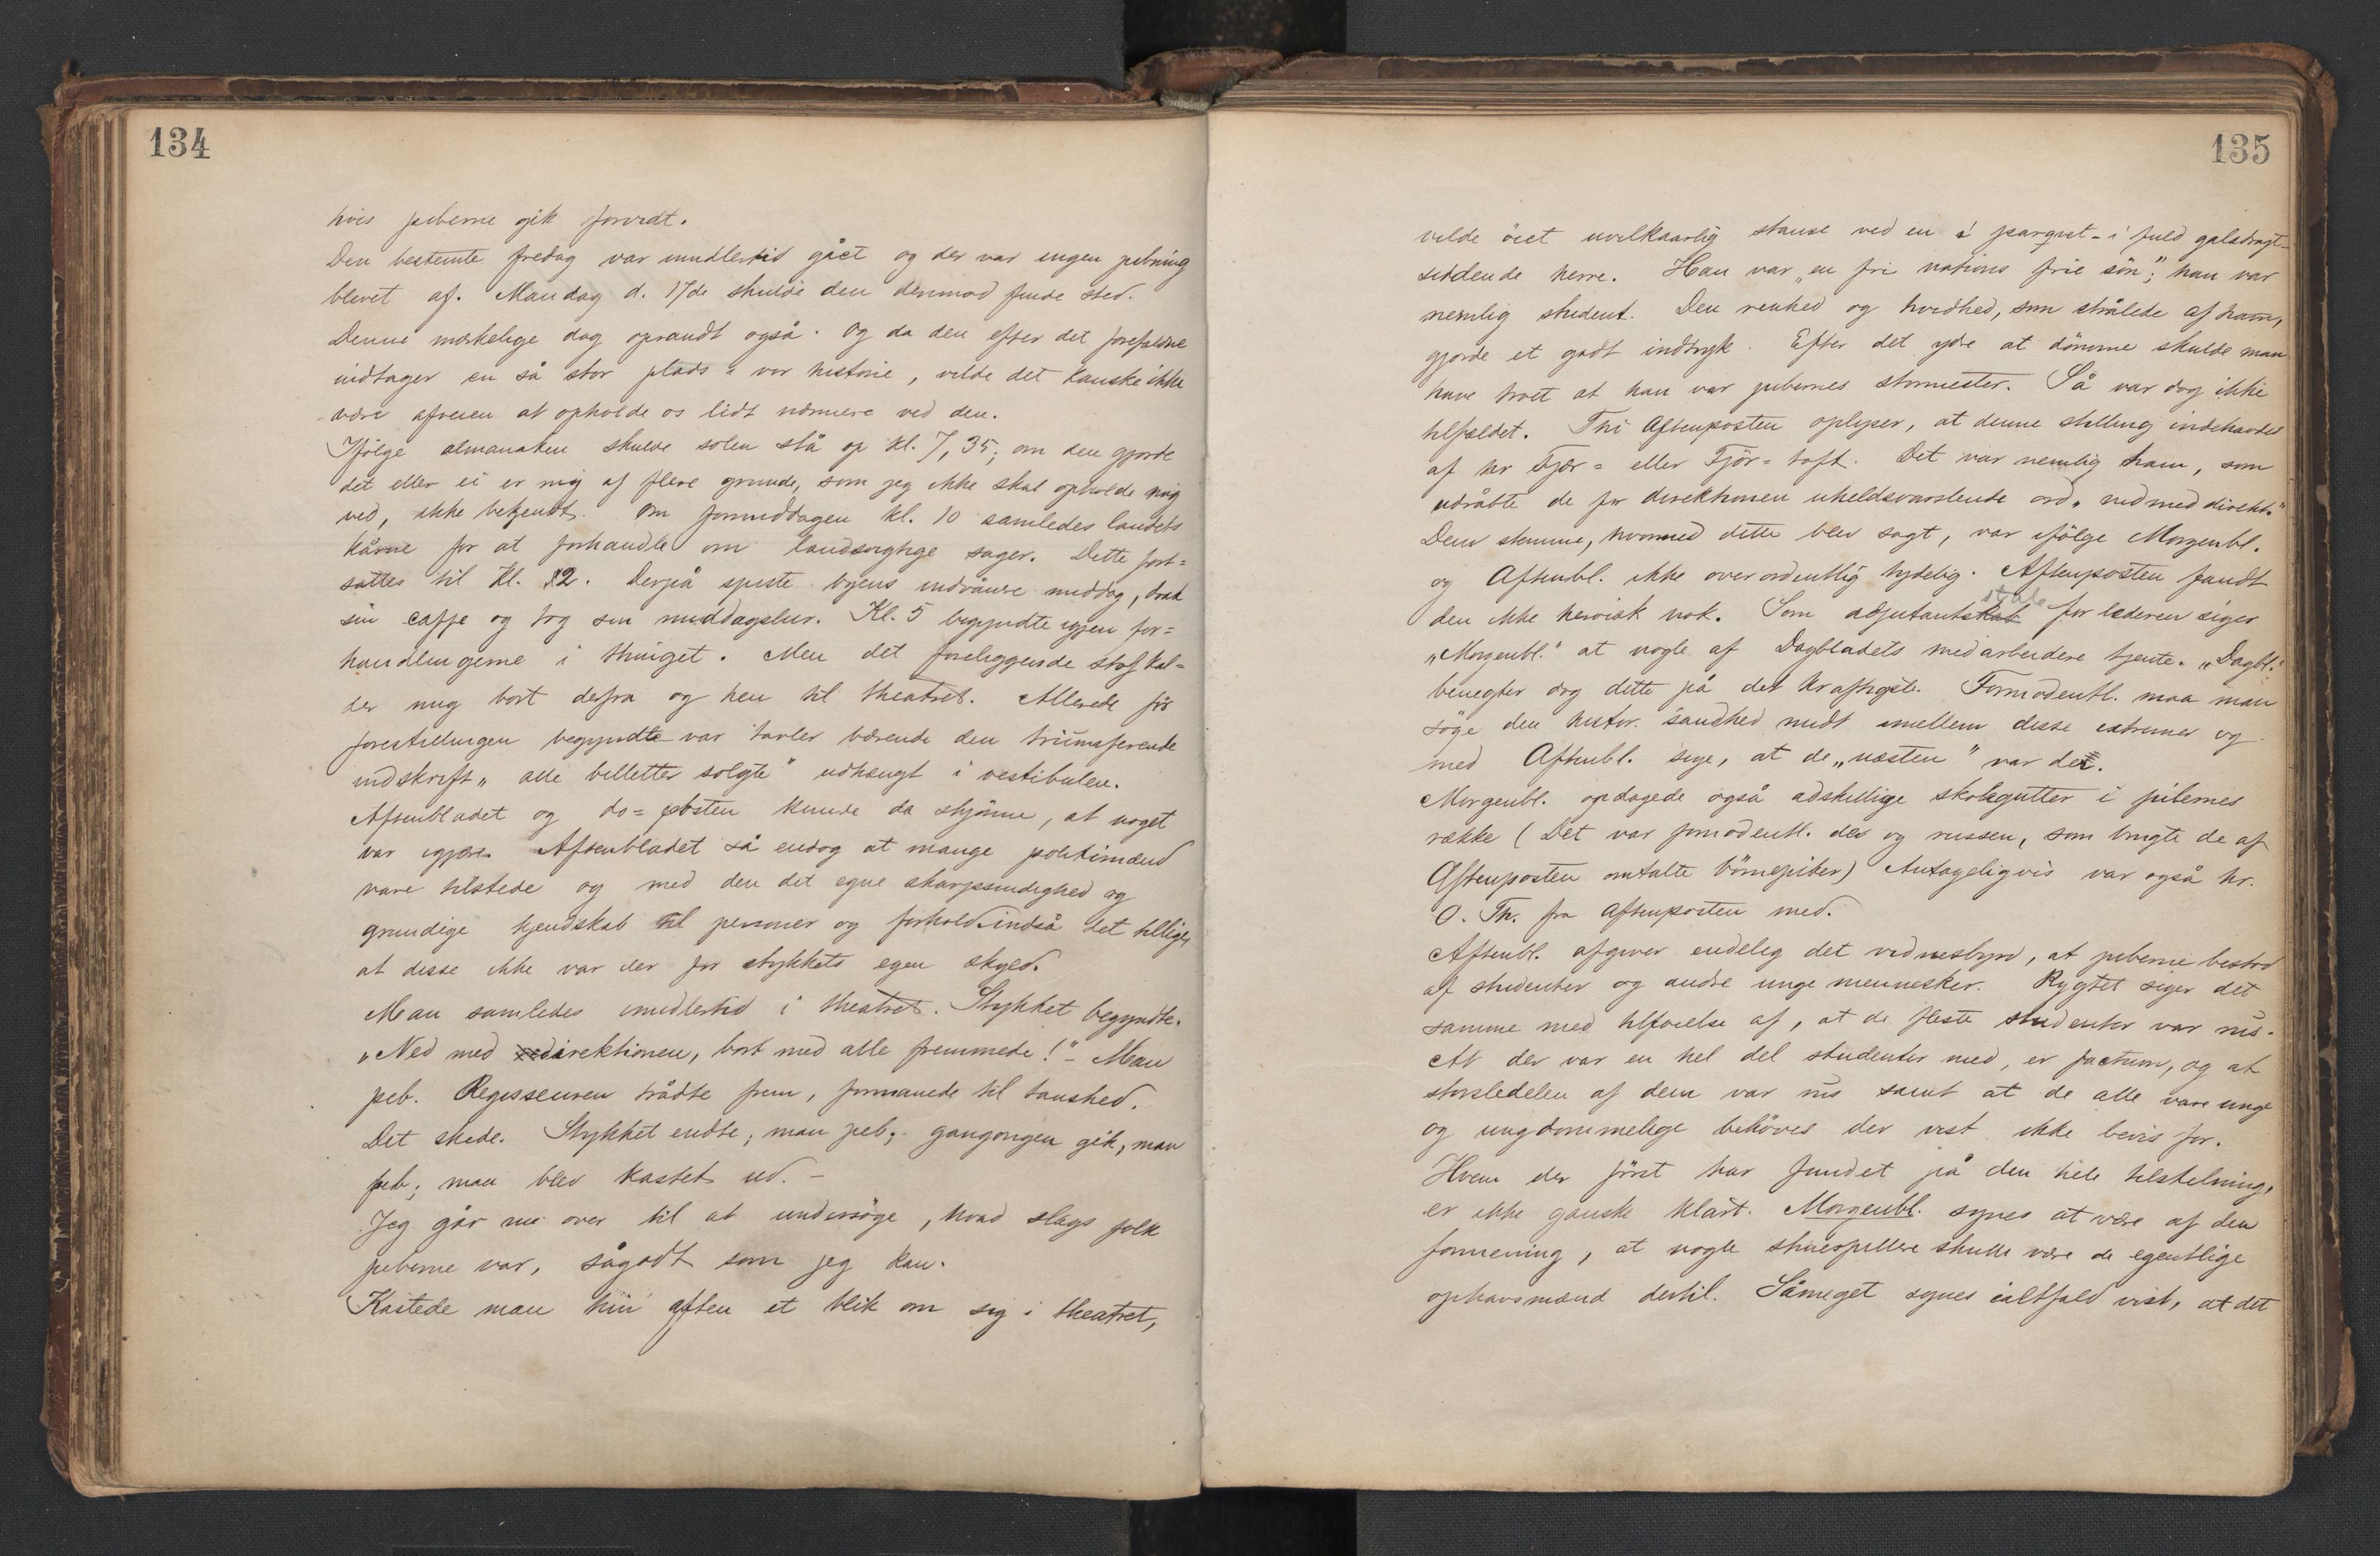 134
hvis piberne gik forvidt.
Den bestemte fredag var imidlertid gået og der var ingen pibning
blevet af. Mandag d. 17de skulde den derimod finde sted.
Denne mærkelige dag oprandt også. Og da den efter det forefaldne
indtager en så stor plads i vor historie, vilde det kanske ikke
være afveien at opholde os lidt nærmere ved den.
Ifölge almanaken skulde solen stå op kl. 7,35; om den gjorde
det eller ei er mig af flere grunde, som jeg ikke skal opholde mig
ved, ikke bekjendt. Om formiddagen kl. 10 samledes landets
kårne for at forhandle om landsvigtige sager. Dette fort=
sattes til kl. 2. Derpå spiste byens indvånere middag, drak
sin caffe og tog sin middagslur. Kl. 5 begyndte igjen for=
handlingerne i thinget. Men det foreliggende stof kal=
der mig bort derfra og hen til theatret. Allerede för
forestillingen begyndte var tavler bærende den triumferende
indskrift „alle billetter solgte" udhængt i vestibulen.
Aftenbladet og do=posten kunde da skjönne, at noget
var igjære. Aftenbladet så endog at mange politimænd
vare tilstede og med den det egne skarpsindighed og
grundige kjendskab til personer og forhold indså det tillige,
at disse ikke var der for stykkets egen skyld.
Man samledes imidlertid i theatret. Stykket begyndte.
„Ned med direktionen, bort med alle fremmede!" – Man
peb. Regisseuren trådte frem, formanede til taushed.
Det skede. Stykket endte; man peb; gangongen gik, man
peb; man blev kastet ud. –
Jeg går nu over til at undersöge, hvad slags folk
piberne var, sågodt som jeg kan.
Kastede man hin aften et blik om sig i theatret,
135
vilde öiet uvilkaarlig stanse ved en i parquet – i fuld galadragt –
siddende herre. Han var „en fri nations frie sön"; han var
nemlig student. Den renhed og hvidhed, som strålede af ham,
gjorde et godt indtryk. Efter det ydre at dömme skulde man
have troet at han var pibernes stormester. Så var dog ikke
tilfældet. Thi Aftenposten oplyser, at denne stilling indehavdes
af hr Fjær= eller Fjör=toft. Det var nemlig ham, som
udråbte de for direktionen uheldsvarslende ord „ned med direkt."
Den stemme, hvormed dette blev sagt, var ifölge Morgenbl.
og Aftenbl. ikke overordentlig tydelig. Aftenposten fandt
den ikke heroisk nok. Som adjutantskab for lederen siger
„Morgenbl." at nogle af Dagbladets medarbeidere tjente. „Dagbl."
benegter dog dette på det kraftigste. Formodentl. maa man
söge den histor. sandhed midt imellem disse extremer og
med Aftenbl. sige, at de „næsten" var der.
Morgenbl. opdagede også adskillige skolegutter i pibernes
række (Det var formodentl. des og russen, som brugte de af
Aftenposten omtalte börnepiber) Antageligvis var også hr.
O. Th. fra Aftenposten med.
Aftenbl. afgiver endelig det vidnesbyrd, at piberne bestod
af studenter og andre unge mennesker. Rygtet siger det
samme med tilföielse af, at de fleste studenter var rus.
At der var en hel del studenter med, er factum, og at
störstedelen af dem var rus samt at de alle vare unge
og ungdommelige behöves der vist ikke bevis for.
Hvem der först har fundet på den hele tilstelning,
er ikke ganske klart. Morgenbl. synes at være af den
formening, at nogle skuespillere skulle være de egentlige
ophavsmænd dertil. Såmeget synes ialtfald vist, at det